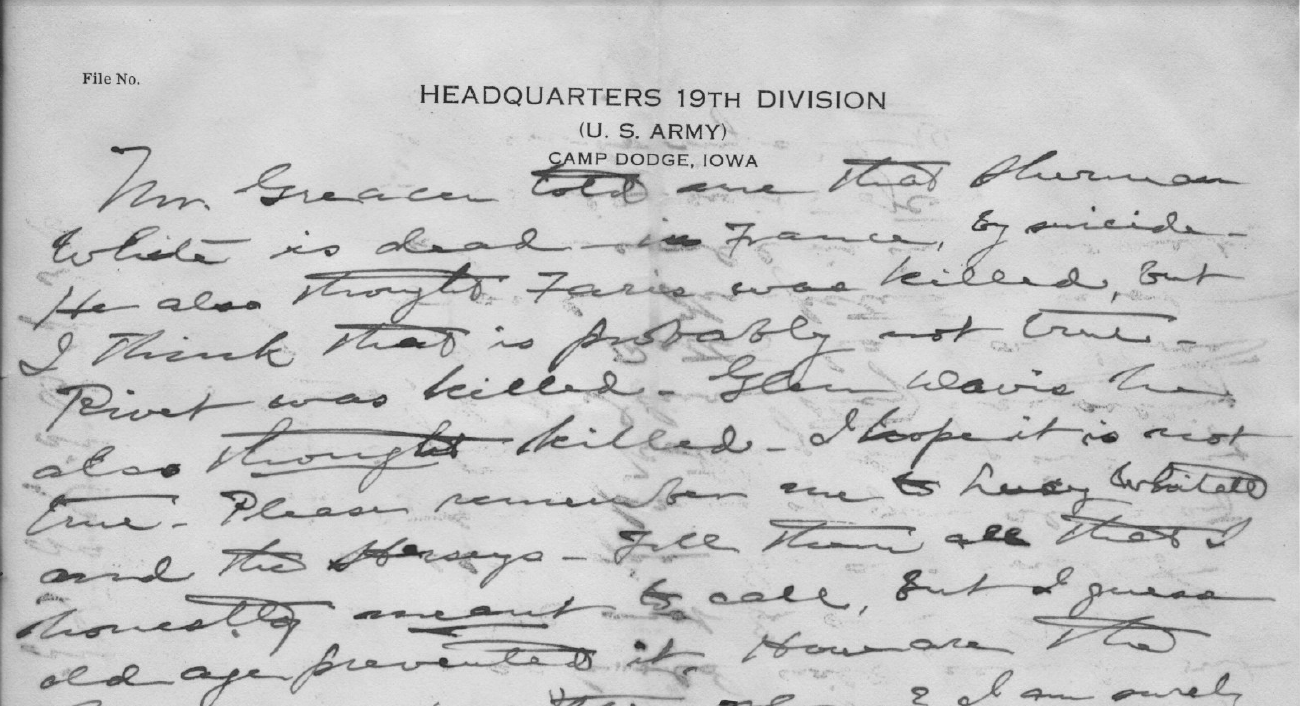 File No.
HEADQUARTERS 19TH DIVISION
(U. S. ARMY)
CAMP DODGE, IOWA
Mr. Greacen told me that Sherman
White is dead – in France, by suicide –
He also thought Faris was killed, but
I think that is probably not true –
Rivet was killed – Glen Davis he
also thought killed – I hope it is not
true – Please remember me to Lucy
and the Herseys – Tell them all that I
honestly meant to call, but I guess
old age prevented it. How are the
I am surely